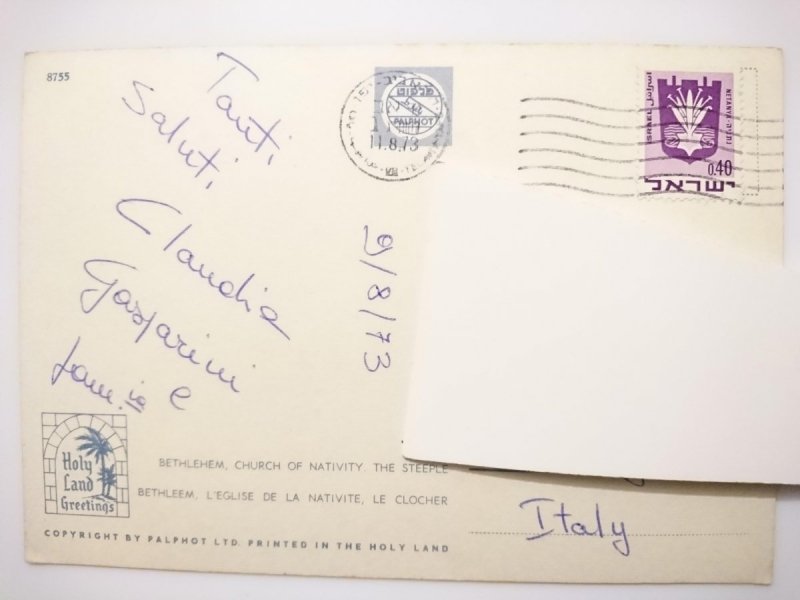 8755
Tanti
Saluti,
Claudia
Gasparini
e fam.ia
9/8/73
פלפוט
PALPHOT
11.8.73
ISRAEL
اسرائيل
NETANYA - נתניה
0.40
ישראל
Holy
Land
Greetings
BETHLEHEM, CHURCH OF NATIVITY. THE STEEPLE
BETHLEEM, L'EGLISE DE LA NATIVITE, LE CLOCHER
COPYRIGHT BY PALPHOT LTD. PRINTED IN THE HOLY LAND
Italy